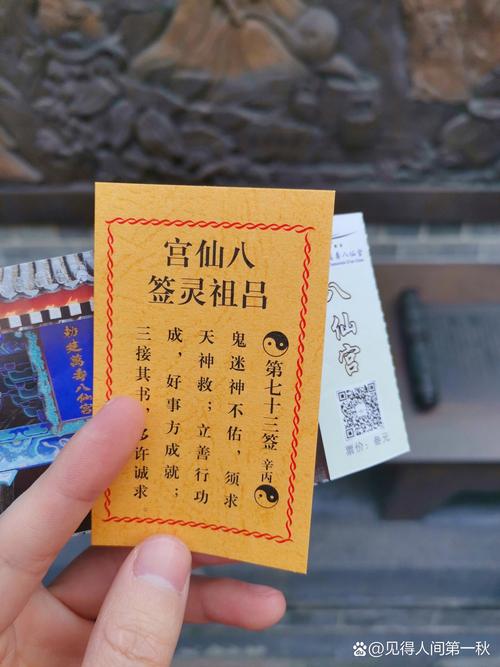 八仙宫
吕祖灵签
第七十三签 辛丙
鬼迷神不佑，须求
天神救；立善行功
成，好事方成就；
三接其书，许诚求
勅建萬壽八仙宮
壽八仙宮
八仙宮
票价：叁元
@见得人间第一秋